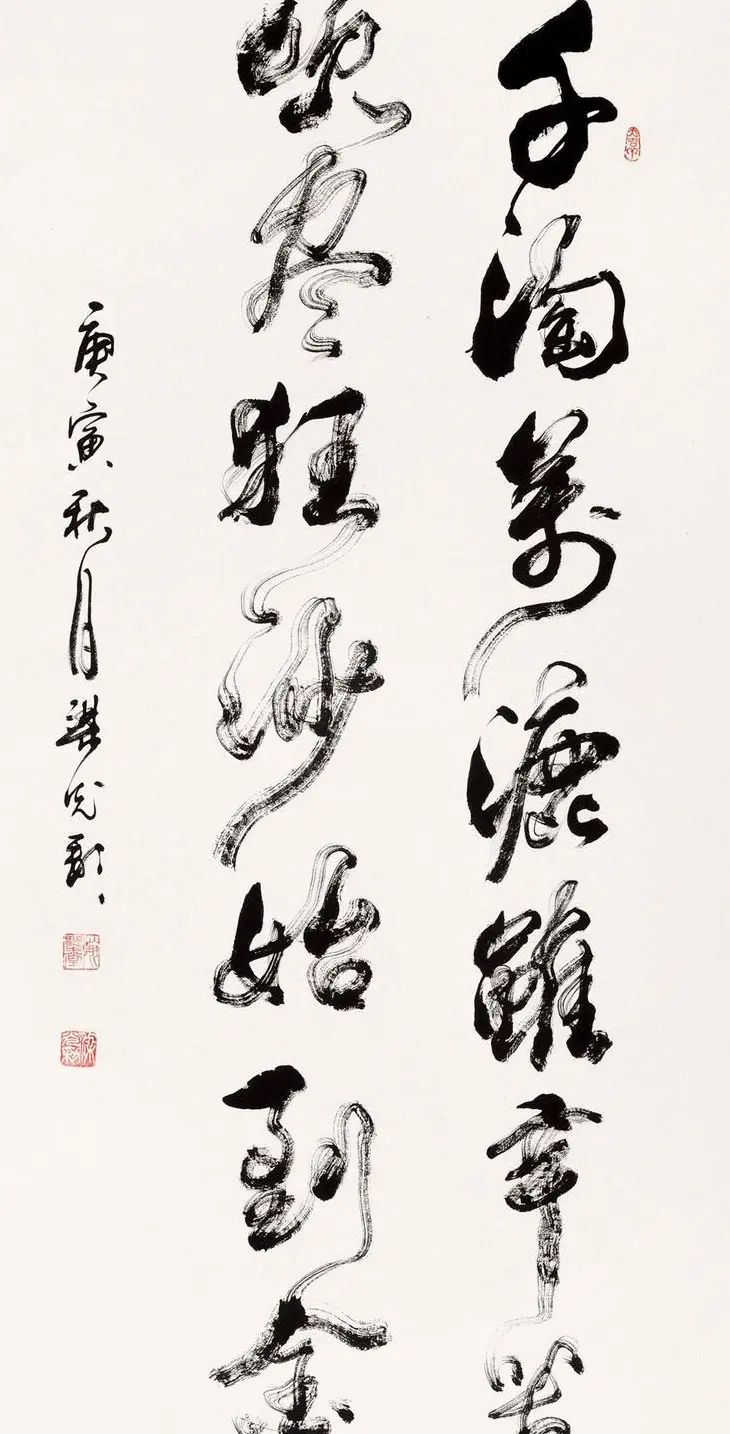 千淘萬漉雖辛苦
吹尽狂沙始到金
庚寅秋月